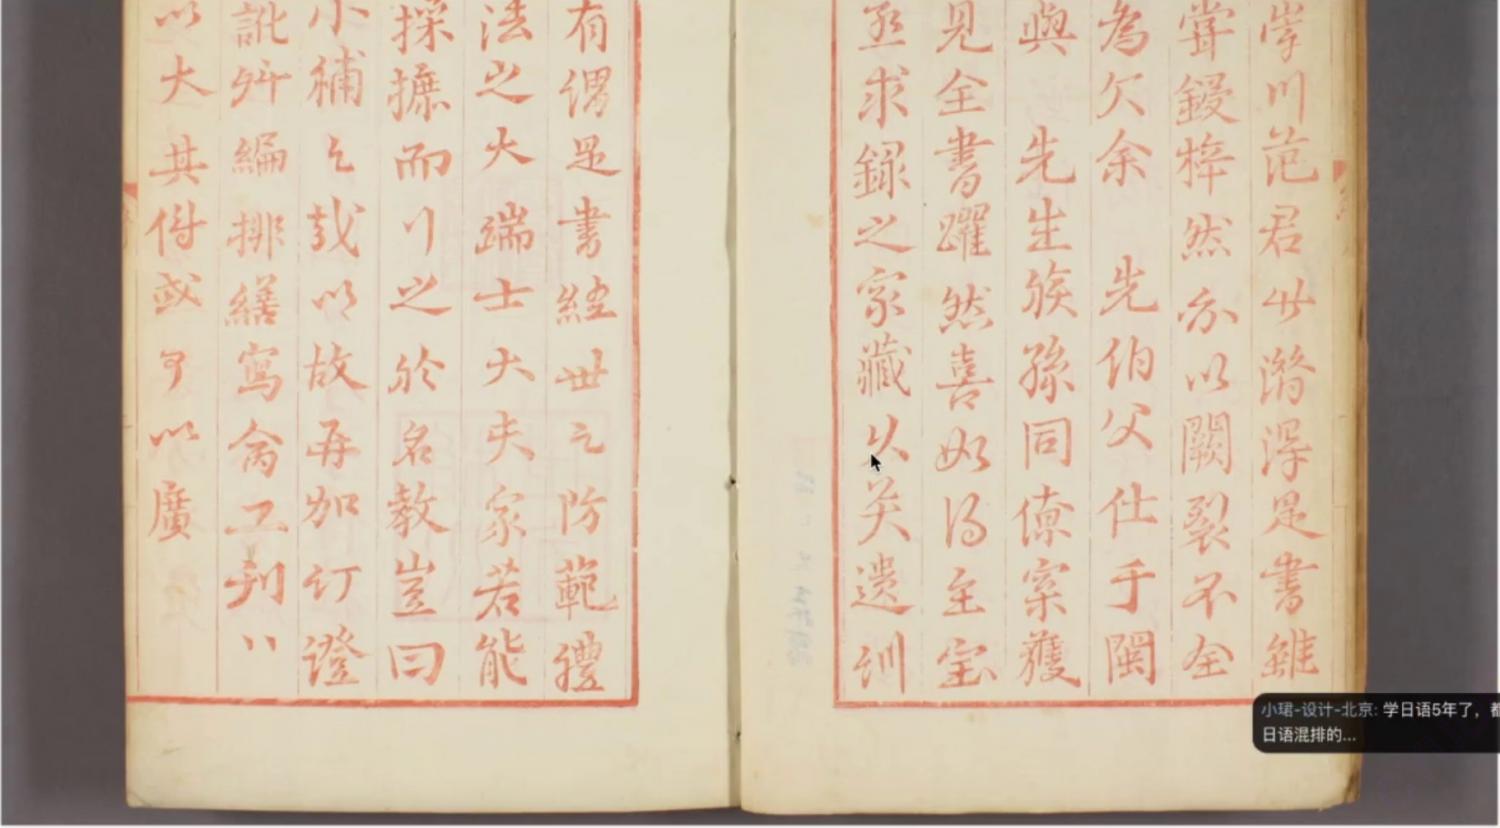 川范君少潛淂是書雖
嘗鋟梓然亦以闕裂不全
為欠余 先伯父仕于閩
與 先生族孫同僚寀獲
見全書躍然喜如得至宝
亟求錄之家藏久矣遺訓
有謂是書経世之防範禮
法之大端士大夫家若能
採摭而行之於名教豈曰
小補之哉以故再加訂證
訛舛編排繕寫命工刋行
以大其傳或可以廣
小珺-设计-北京: 学日语5年了，都
日语混排的...